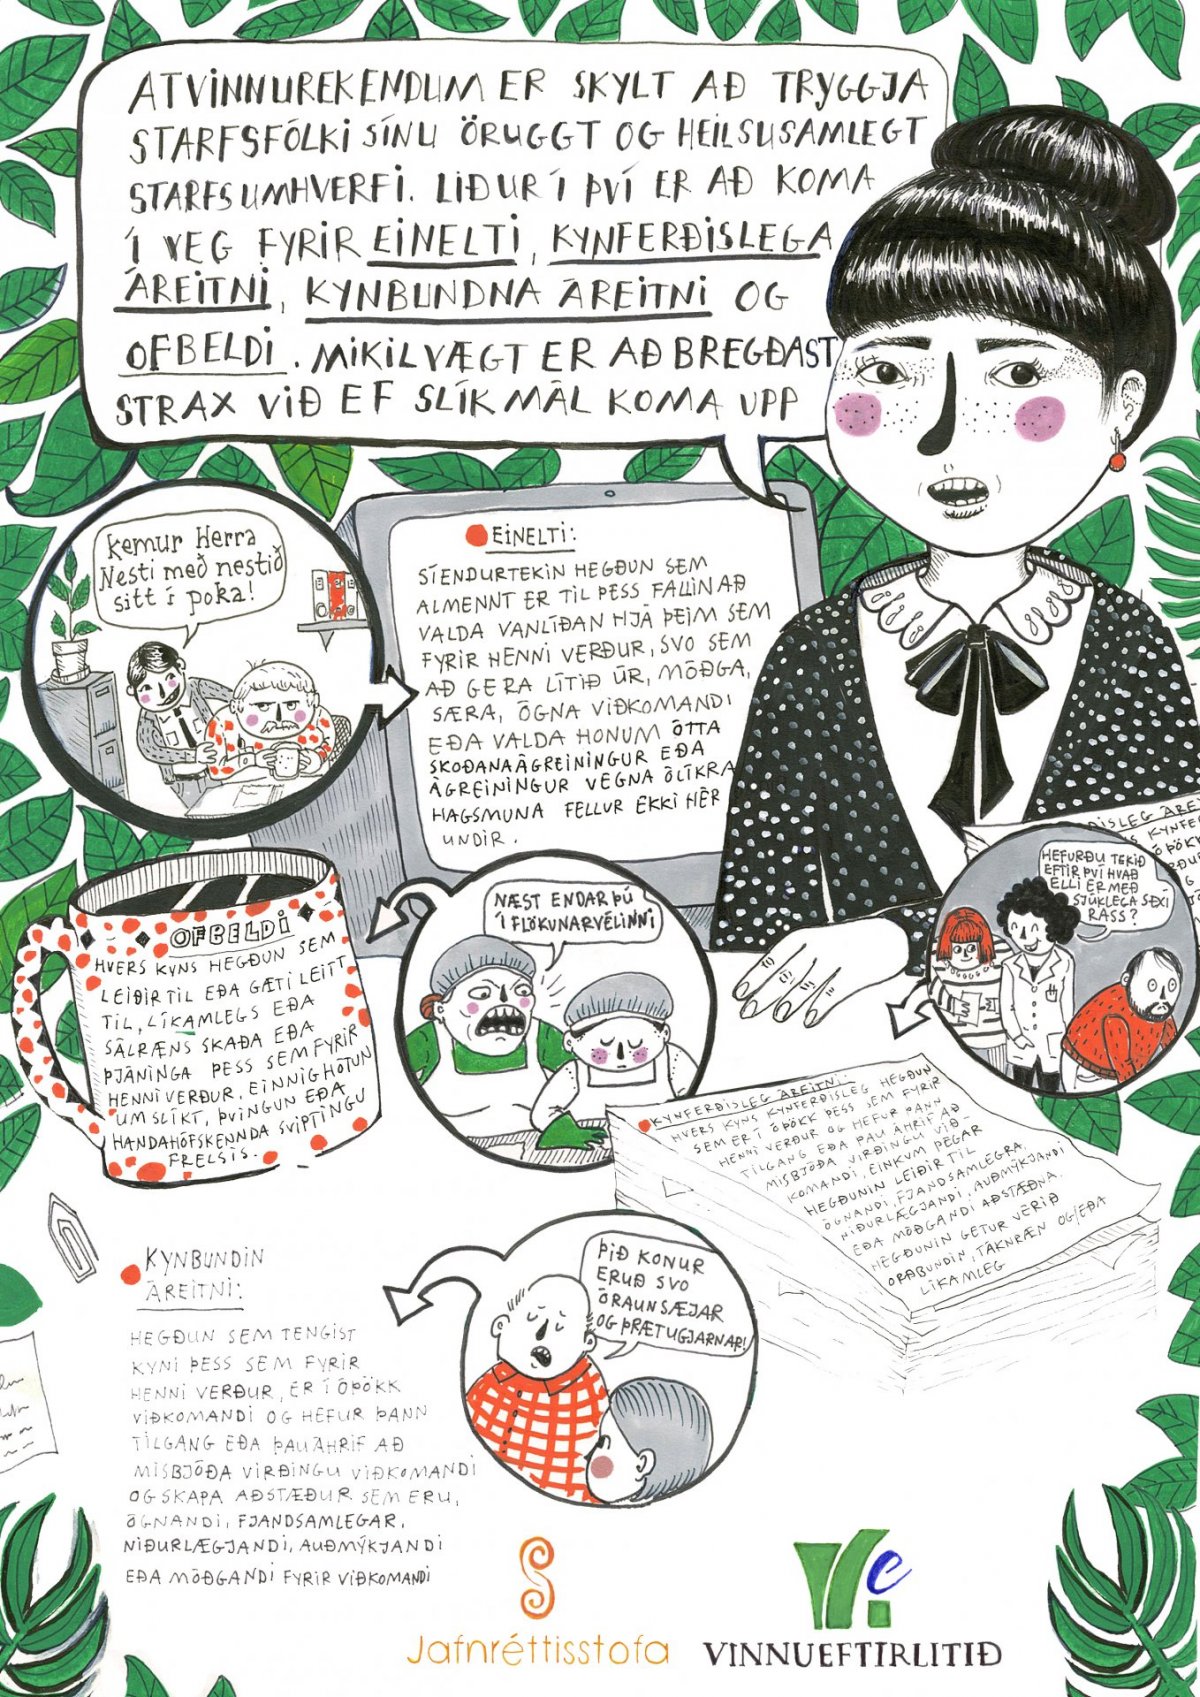 ATVINNUREKENDUM ER SKYLT AÐ TRYGGJA
STARFSFÓLKI SÍNU ÖRUGGT OG HEILSUSAMLEGT
STARFSUMHVERFI. LIÐUR Í ÞVÍ ER AÐ KOMA
Í VEG FYRIR EINELTI, KYNFERÐISLEGA
ÁREITNI, KYNBUNDNA ÁREITNI OG
OFBELDI. MIKILVÆGT ER AÐ BREGÐAST
STRAX VIÐ EF SLÍK MÁL KOMA UPP
Kemur Herra
Nesti með nestið
sitt í poka!
EINELTI:
SÍENDURTEKIN HEGÐUN SEM
ALMENNT ER TIL ÞESS FALLIN AÐ
VALDA VANLÍÐAN HJÁ ÞEIM SEM
FYRIR HENNI VERÐUR, SVO SEM
AÐ GERA LÍTIÐ ÚR, MÓÐGA,
SÆRA, ÓGNA VIÐKOMANDI
EÐA VALDA HONUM ÓTTA
SKOÐANAÁGREININGUR EÐA
ÁGREININGUR VEGNA ÓLÍKRA
HAGSMUNA FELLUR EKKI HÉR
UNDIR.
OFBELDI
HVERS KYNS HEGÐUN SEM
LEIÐIR TIL EÐA GÆTI LEITT
TIL, LÍKAMLEGS EÐA
SÁLRÆNS SKAÐA EÐA
ÞJÁNINGA ÞESS SEM FYRIR
HENNI VERÐUR, EINNIG HÓTUN
UM SLÍKT, ÞVINGUN EÐA
HANDAHÓFSKENNDA SVIPTINGU
FRELSIS.
NÆST ENDAR ÞÚ
Í FLÖKUNARVÉLINNI
HEFURÐU TEKIÐ
EFTIR ÞVÍ HVAÐ
ELLI ER MEÐ
SJÚKLEGA SEXÍ
RASS?
KYNFERÐISLEG ÁREITNI:
HVERS KYNS KYNFERÐISLEG HEGÐUN
SEM ER Í ÓÞÖKK ÞESS SEM FYRIR
HENNI VERÐUR OG HEFUR ÞANN
TILGANG EÐA ÞAU ÁHRIF AÐ
MISBJÓÐA VIRÐINGU VIÐ-
KOMANDI, EINKUM ÞEGAR
HEGÐUNIN LEIÐIR TIL
ÓGNANDI, FJANDSAMLEGRA,
NIÐURLÆGJANDI, AUÐMÝKJANDI
EÐA MÓÐGANDI AÐSTÆÐNA.
HEGÐUNIN GETUR VERIÐ
ORÐBUNDIN, TÁKNRÆN OG/EÐA
LÍKAMLEG
KYNBUNDIN
ÁREITNI:
HEGÐUN SEM TENGIST
KYNI ÞESS SEM FYRIR
HENNI VERÐUR, ER Í ÓÞÖKK
VIÐKOMANDI OG HEFUR ÞANN
TILGANG EÐA ÞAU ÁHRIF AÐ
MISBJÓÐA VIRÐINGU VIÐKOMANDI
OG SKAPA AÐSTÆÐUR SEM ERU,
ÓGNANDI, FJANDSAMLEGAR,
NIÐURLÆGJANDI, AUÐMÝKJANDI
EÐA MÓÐGANDI FYRIR VIÐKOMANDI
ÞIÐ KONUR
ERUÐ SVO
ÓRAUNSÆJAR
OG ÞRÆTUGJARNAR!
Jafnréttisstofa
VINNUEFTIRLITIÐ